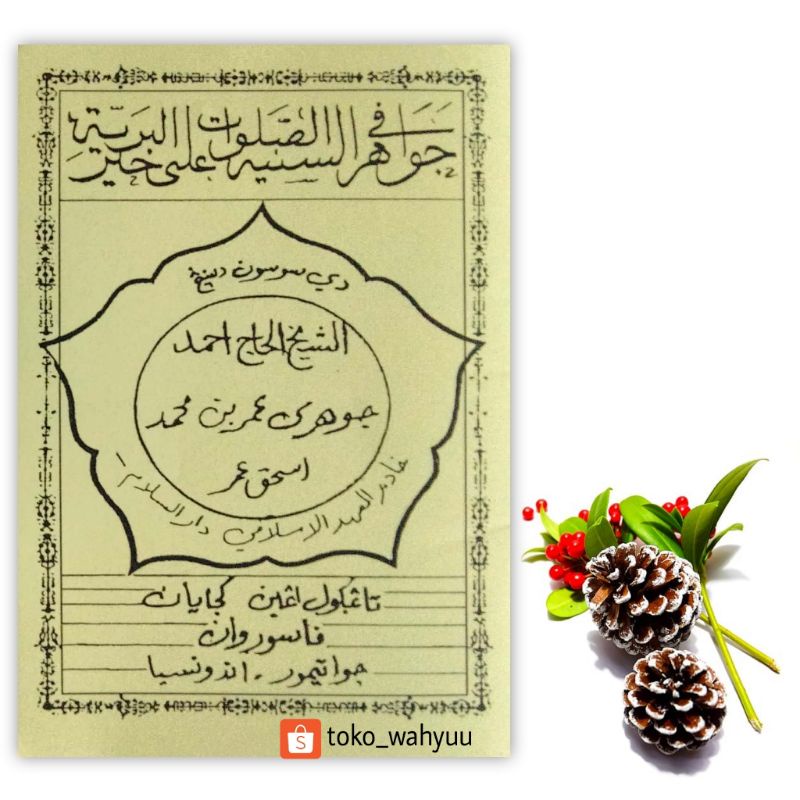 جواهر السنية في الصلوات على خير البريّة
دي سوسون دينيڠ
الشيخ الحاج احمد
جوهرى عمر بن محمد
اسحق عمر
خادم المعهد الاسلامي دار السلام -
تاڠكول اڠين كجايان
فاسوروان
جواتيمور - اندونسيا
toko_wahyuu